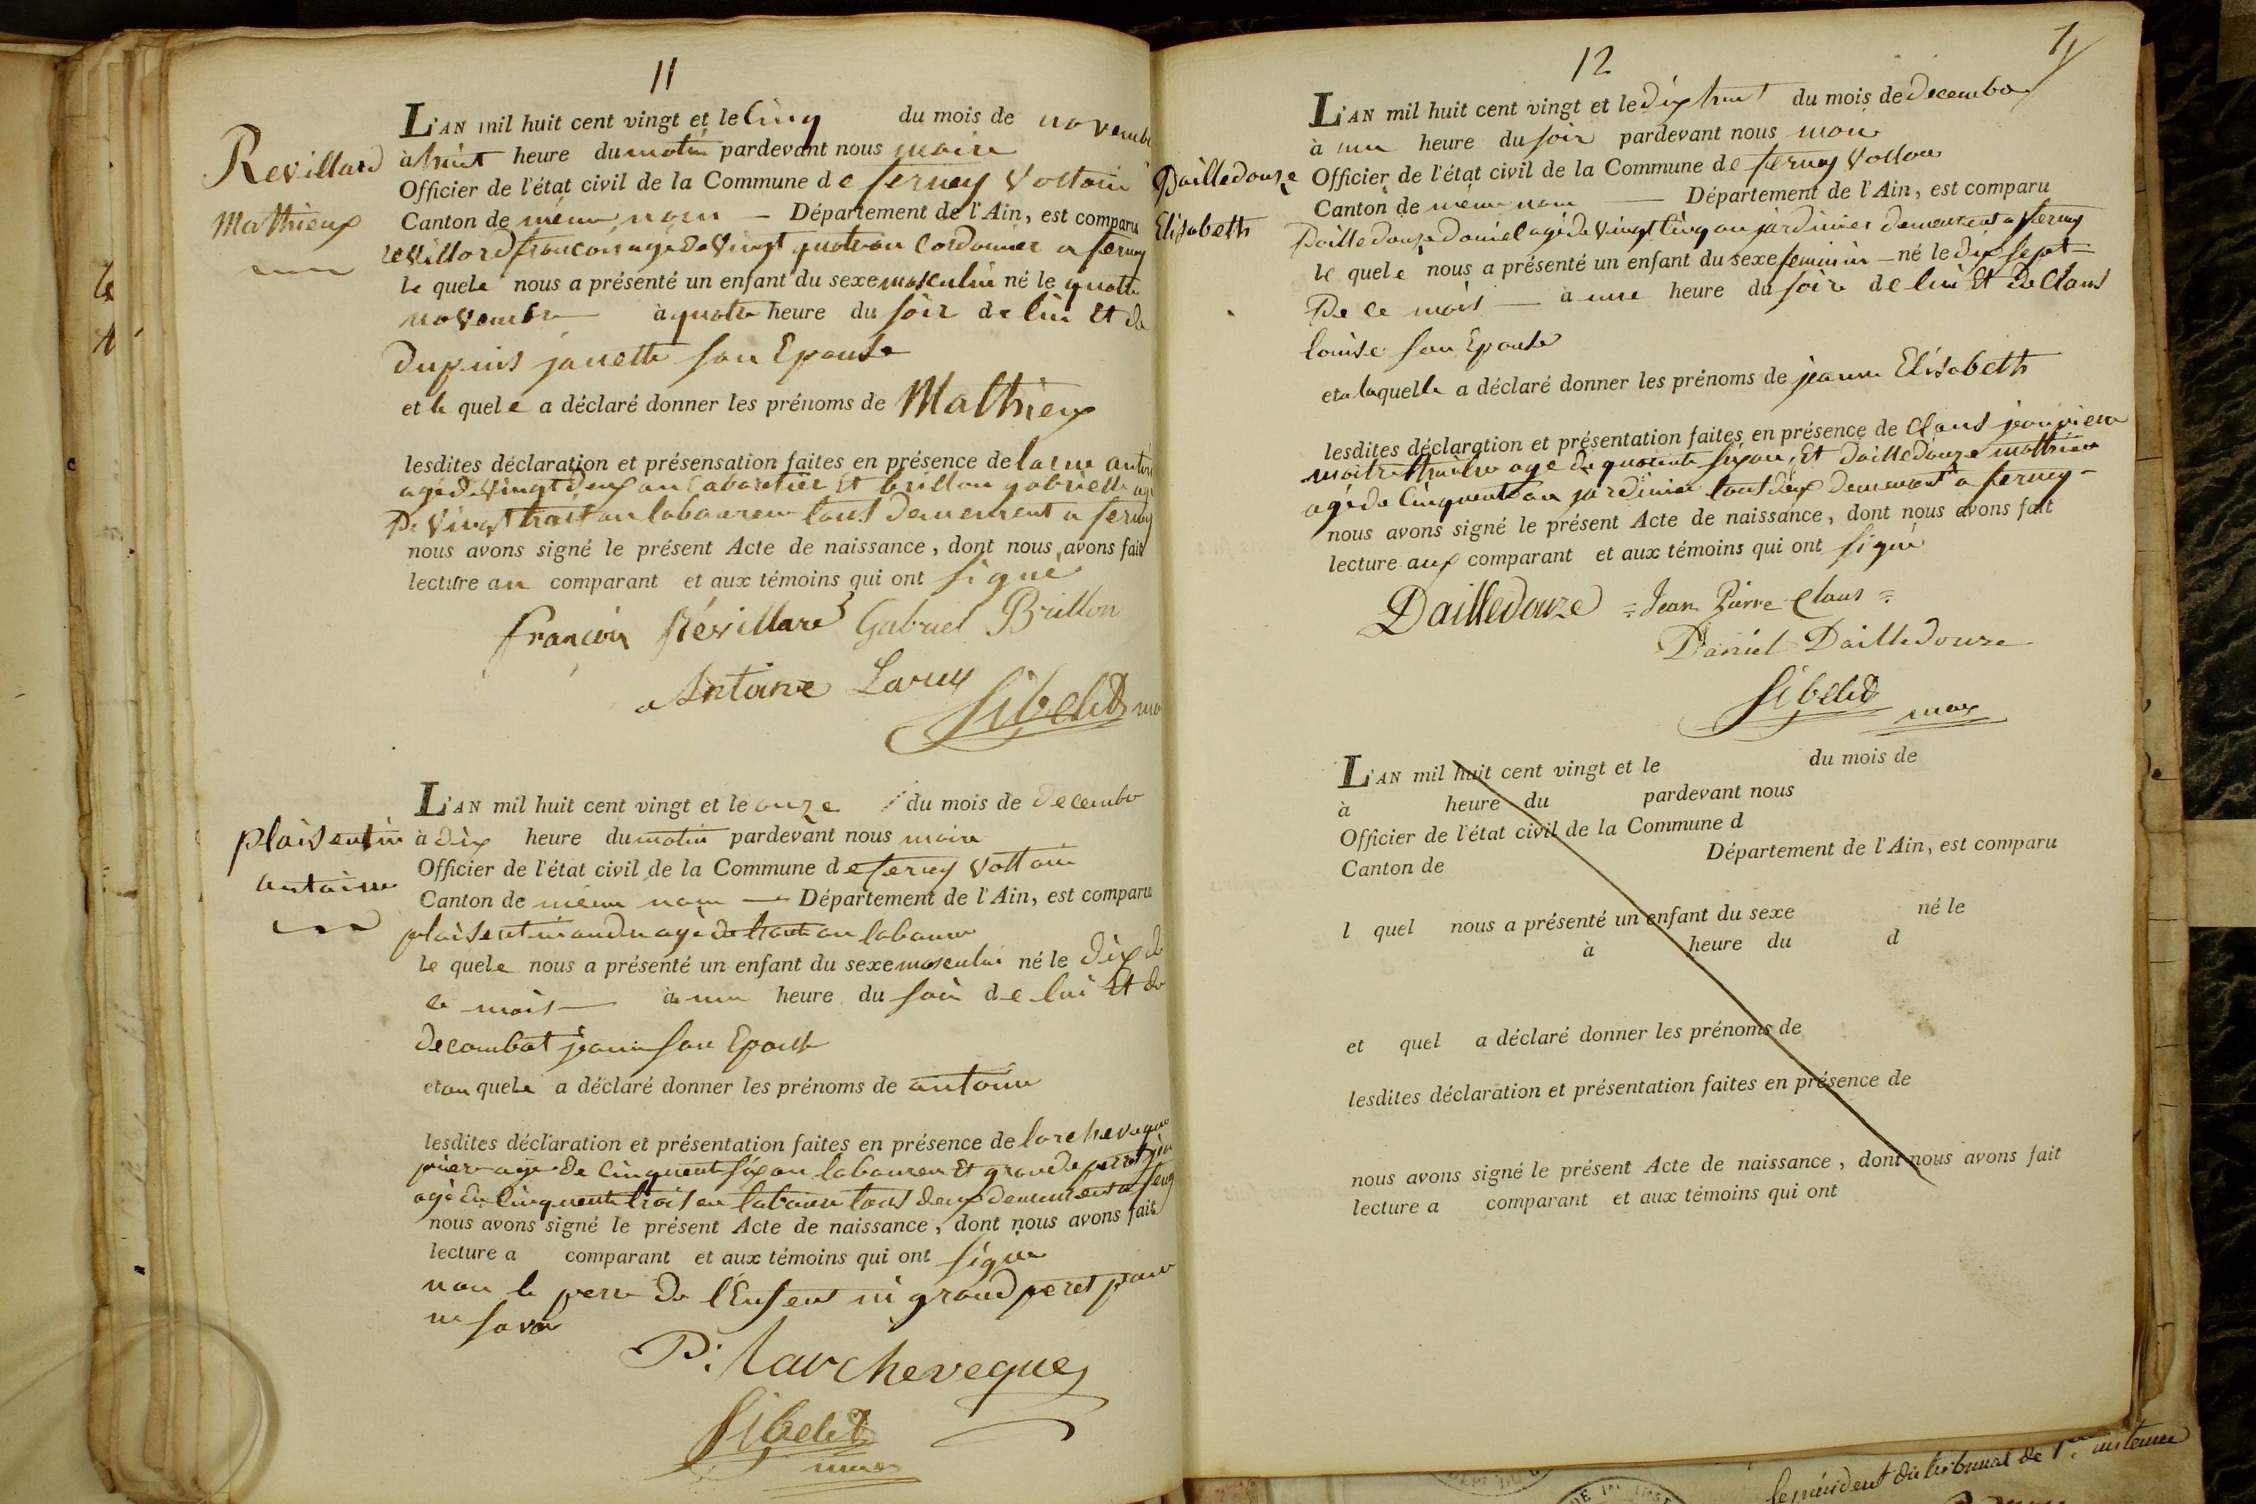 11
Revillard
Mathieux
L'AN mil huit cent vingt et le cinq du mois de novembre
à huit heure du matin pardevant nous maire
Officier de l'état civil de la Commune de ferney Voltaire
Canton de même nom — Département de l'Ain, est comparu
revillard francois agé de vingt quatre an Cordonier a ferney
le quele nous a présenté un enfant du sexe masculin né le quatre
novembre à quatre heure du soir de lui Et de
dupuis janette son Epouse
et le quele a déclaré donner les prénoms de Mathieux
lesdites déclaration et présensation faites en présence de
agé de Vingt deux an Cabaretier Et brillon gabrielle agé
De Vingt trois an laboureur tous demement a ferney
nous avons signé le présent Acte de naissance, dont nous avons fait
lecture au comparant et aux témoins qui ont signé
françois Révillard Gabriel Brillon
Antoine Larue
Plaisentin
antoine
L'AN mil huit cent vingt et le onze du mois de decembre
à dix heure du matin pardevant nous maire
Officier de l'état civil de la Commune de ferney Voltaire
Canton de même nom — Département de l'Ain, est comparu
agé de trante an
le quele nous a présenté un enfant du sexe masculin né le dix de
ce mois — à une heure du soir de lui Et de
decombat jeanne son Epouse
et au quele a déclaré donner les prénoms de antoine
lesdites déclaration et présentation faites en présence de larcheveque
pierre agé de Cinquente six an laboureur Et grande perret
agé de Cinquente trois an laboureur tous deux demement a
nous avons signé le présent Acte de naissance, dont nous avons fait
lecture a comparant et aux témoins qui ont signé
non le pere de l'Enfent ni grand peret pour
ne savoir
P: Larcheveque
Sibelid
maire
12
Dailledouze
Elisabeth
L'AN mil huit cent vingt et le dix huit du mois de decembre
à une heure du soir pardevant nous maire
Officier de l'état civil de la Commune de ferney Voltaire
Canton de même nom — Département de l'Ain, est comparu
Dailledouze Daniel agé de Vingt Cinq an jardinier demeurent a ferney
le quele nous a présenté un enfant du sexe feminin — né le dix sept
De ce mois — à une heure du soir de lui Et de Claus
louise son Epouse
et a laquelle a déclaré donner les prénoms de jeanne Elisabeth
lesdites déclaration et présentation faites en présence de Claus jean pierre
agé de quarente six an, Et dailledouze mathieu
agé de Cinquente an jardinier tous deux demeurant a ferney —
nous avons signé le présent Acte de naissance, dont nous avons fait
lecture aux comparant et aux témoins qui ont signé
Dailledouze = Jean Pierre Claus =
Daniel Dailledouze
Sibelid
maire
L'AN mil huit cent vingt et le du mois de
à heure du pardevant nous
Officier de l'état civil de la Commune d
Canton de Département de l'Ain, est comparu
l quel nous a présenté un enfant du sexe né le
à heure du d
et quel a déclaré donner les prénoms de
lesdites déclaration et présentation faites en présence de
nous avons signé le présent Acte de naissance, dont nous avons fait
lecture a comparant et aux témoins qui ont
le président du tribunal de 1ère instance